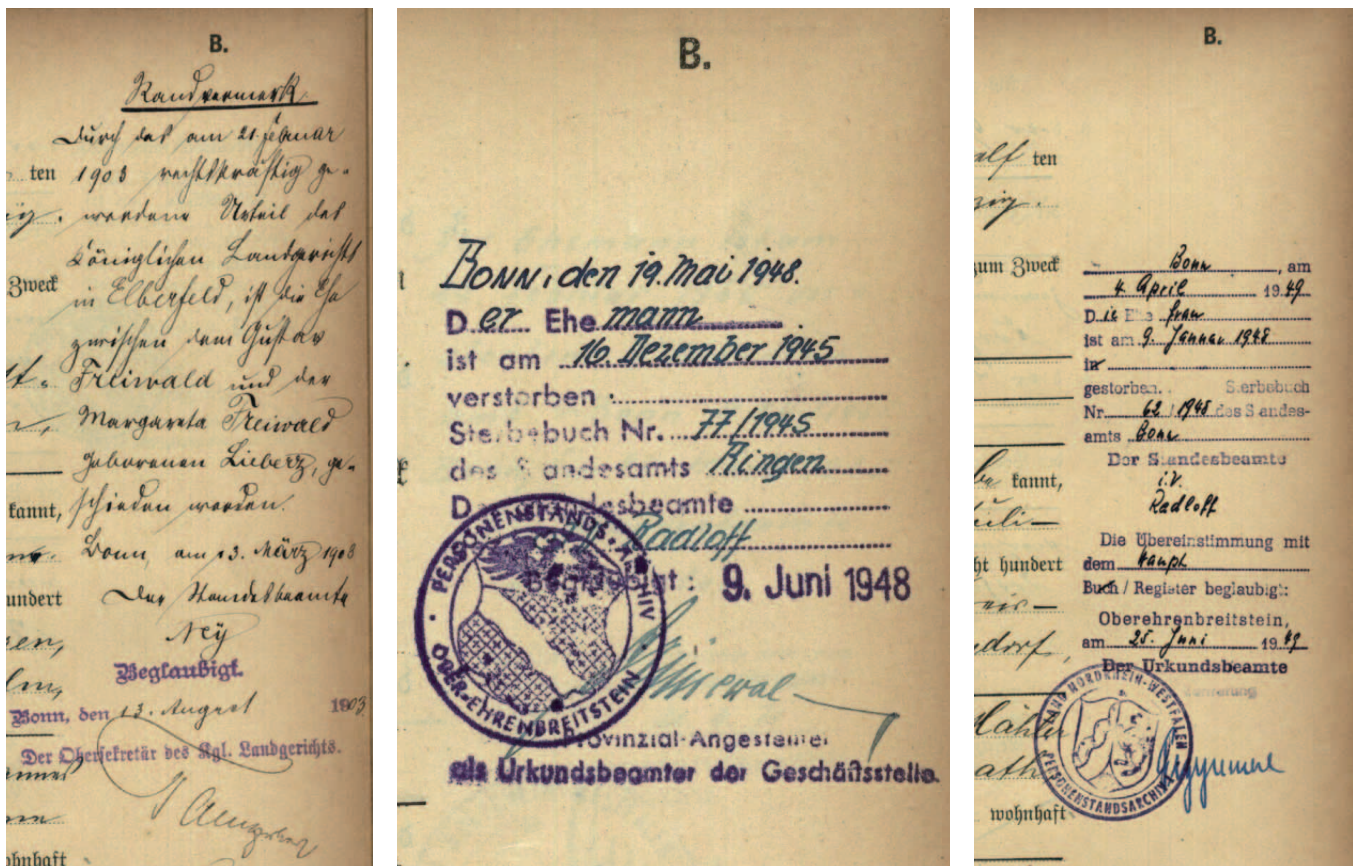 B.
Randvermerk
Durch das am 21. Februar
ten 1903 rechtskräftig ge-
wordene Urteil des
Königlichen Landgerichts
Zweck in Elberfeld, ist die Ehe
zwischen dem Gustav
Freiwald und der
Margareta Freiwald
geborenen Lieberz, ge-
kannt, schieden worden.
Bonn, am 13. März 1903
undert Der Standesbeamte
Ney
Beglaubigt.
Bonn, den 13. August 1903
Der Obersekretär des Kgl. Landgerichts.
wohnhaft
B.
Bonn, den 19. Mai 1948.
Der Ehemann
ist am 16. Dezember 1945
verstorben
Sterbebuch Nr. 77/1945
des Standesamts Ringen
D Standesbeamte
Radloff
Beglaubigt: 9. Juni 1948
PERSONENSTANDS-ARCHIV
OBER-EHRENBREITSTEIN
Provinzial-Angestellter
als Urkundsbeamter der Geschäftsstelle.
B.
ten
zum Zweck
Bonn, am
4. April 1949
Die Ehefrau
ist am 9. Januar 1948
in
gestorben. Sterbebuch
Nr. 62/1948 des Standes-
amts Bonn
Der Standesbeamte
kannt, i.V.
Radloff
Die Übereinstimmung mit
ht hundert dem Haupt
Buch / Register beglaubigt:
Oberehrenbreitstein,
dorf, am 25. Juni 1949
Der Urkundsbeamte
LAND NORDRHEIN-WESTFALEN
PERSONENSTANDSARCHIV
wohnhaft